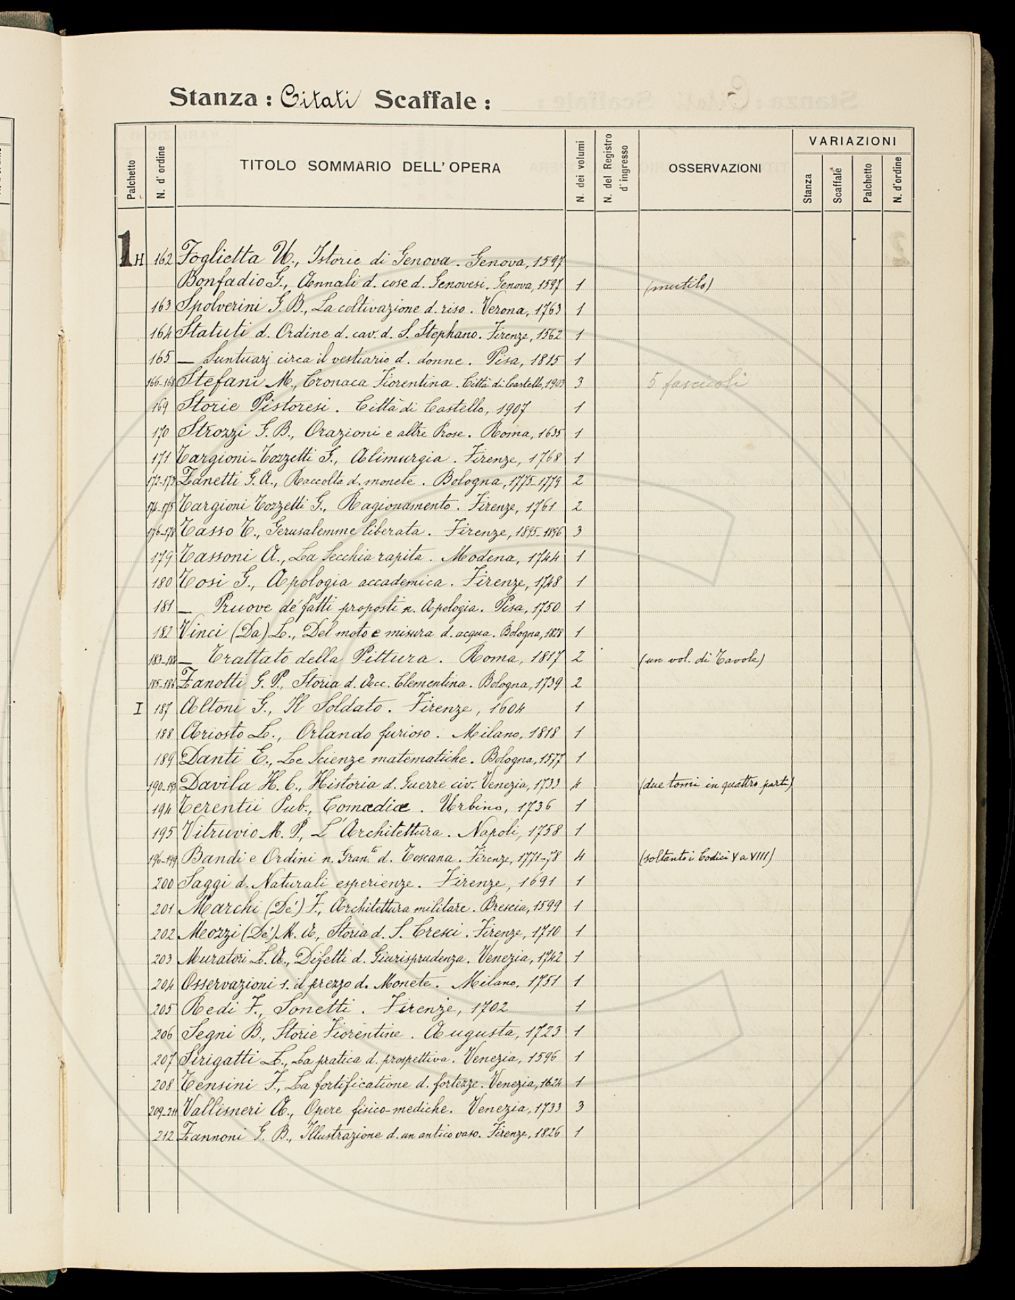 Stanza: Citati Scaffale:
Palchetto N. d'ordine TITOLO SOMMARIO DELL'OPERA N. dei volumi N. del Registro d'ingresso OSSERVAZIONI VARIAZIONI
Stanza Scaffale Palchetto N. d'ordine
1 H 162 Foglietta U., Istorie di Genova. Genova, 1597
Bonfadio G., Annali d. cose d. Genovesi. Genova, 1597 1 (mutilo)
163 Spolverini G. B., La coltivazione d. riso. Verona, 1763 1
164 Statuti d. Ordine d. cav. d. S. Stephano. Firenze, 1562 1
165 — Suntuarj circa il vestiario d. donne. Pisa, 1815 1
166-168 Stefani M., Cronaca Fiorentina. Città di Castello, 1903 3 5 fascicoli
169 Storie Pistoresi. Città di Castello, 1907 1
170 Strozzi G. B., Orazioni e altre Prose. Roma, 1635 1
171 Targioni-Tozzetti G., Alimurgia. Firenze, 1768 1
172-173 Zanetti G. A., Raccolta d. monete. Bologna, 1775-1779 2
174-175 Targioni Tozzetti G., Ragionamento. Firenze, 1761 2
176-178 Tasso T., Gerusalemme liberata. Firenze, 1895-1896 3
179 Tassoni A., La Secchia rapita. Modena, 1744 1
180 Tosi G., Apologia accademica. Firenze, 1748 1
181 — Pruove de' fatti proposti n. Apologia. Pisa, 1750 1
182 Vinci (Da) L., Del moto e misura d. acqua. Bologna, 1828 1
183-184 — Trattato della Pittura. Roma, 1817 2 (un vol. di Tavole)
185-186 Zanotti G. P., Storia d. Acc. Clementina. Bologna, 1739 2
I 187 Altoni G., Il Soldato. Firenze, 1604 1
188 Ariosto L., Orlando furioso. Milano, 1818 1
189 Danti E., Le Scienze matematiche. Bologna, 1577 1
190-193 Davila H. C., Historia d. Guerre civ. Venezia, 1733 4 (due tomi in quattro parti)
194 Terentii Pub., Comœdiæ. Urbino, 1736 1
195 Vitruvio M. P., L'Architettura. Napoli, 1758 1
196-199 Bandi e Ordini n. Gran.to d. Toscana. Firenze, 1771-78 4 (soltanto i Codici V a VIII)
200 Saggi d. Naturali esperienze. Firenze, 1691 1
201 Marchi (De') F., Architettura militare. Brescia, 1599 1
202 Mozzi (De') M. A., Storia d. S. Cresci. Firenze, 1710 1
203 Muratori L. A., Difetti d. Giurisprudenza. Venezia, 1742 1
204 Osservazioni s. il prezzo d. Monete. Milano, 1751 1
205 Redi F., Sonetti. Firenze, 1702 1
206 Segni B., Storie Fiorentine. Augusta, 1723 1
207 Sirigatti L., La pratica d. prospettiva. Venezia, 1596 1
208 Tensini F., La fortificatione d. fortezze. Venezia, 1624 1
209-211 Vallisneri A., Opere fisico-mediche. Venezia, 1733 3
212 Zannoni G. B., Illustrazione d. un antico vaso. Firenze, 1826 1